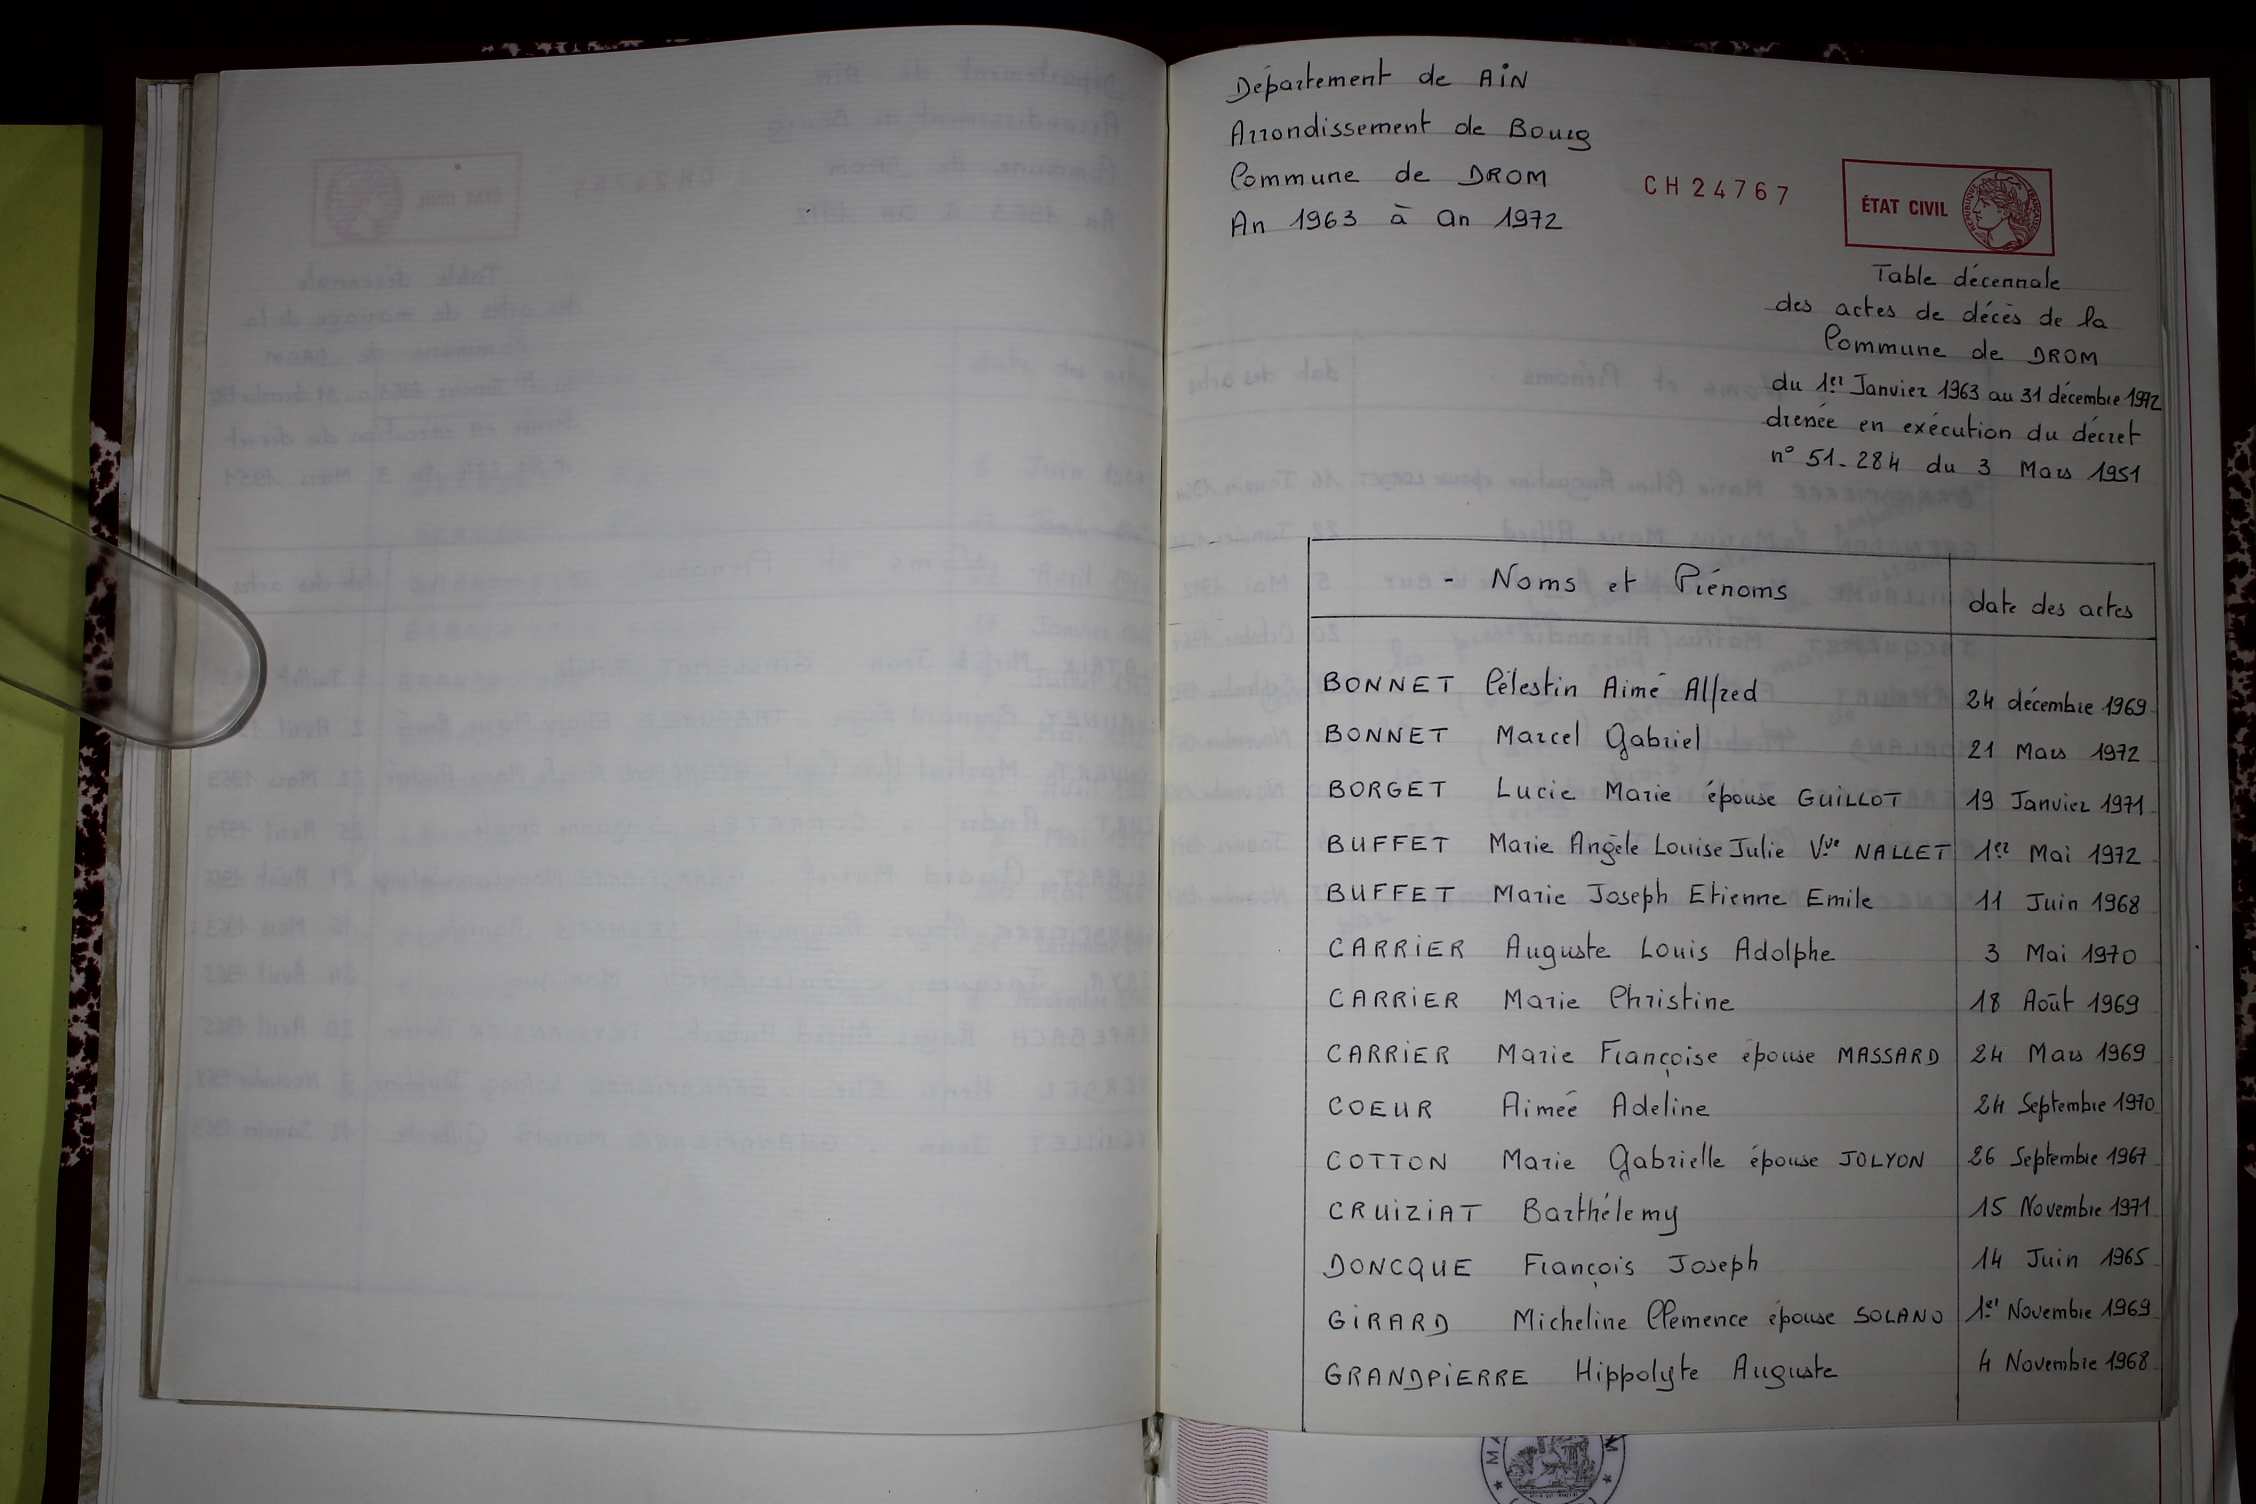 Département de AiN
Arrondissement de Bourg
Commune de DROM
An 1963 à an 1972
CH24767
ÉTAT CIVIL
RÉPUBLIQUE FRANÇAISE
Table décennale
des actes de décès de la
Commune de DROM
du 1er Janvier 1963 au 31 décembre 1972
drenée en exécution du décret
n° 51-284 du 3 Mars 1951
- Noms et Prénoms date des actes
BONNET Célestin Aimé Alfred 24 décembre 1969
BONNET Marcel Gabriel 21 Mars 1972
BORGET Lucie Marie épouse GUiLLOT 19 Janvier 1971
BUFFET Marie Angèle Louise Julie Vve NALLET 1er Mai 1972
BUFFET Marie Joseph Etienne Emile 11 Juin 1968
CARRiER Auguste Louis Adolphe 3 Mai 1970
CARRiER Marie Christine 18 Août 1969
CARRiER Marie Françoise épouse MASSARD 24 Mars 1969
COEUR Aimée Adeline 24 Septembre 1970
COTTON Marie Gabrielle épouse JOLYON 26 Septembre 1967
CRUiZiAT Barthélemy 15 Novembre 1971
DONCQUE François Joseph 14 Juin 1965
GiRARD Micheline Clemence épouse SOLANO 1er Novembre 1969
GRANDPiERRE Hippolyte Auguste 4 Novembre 1968